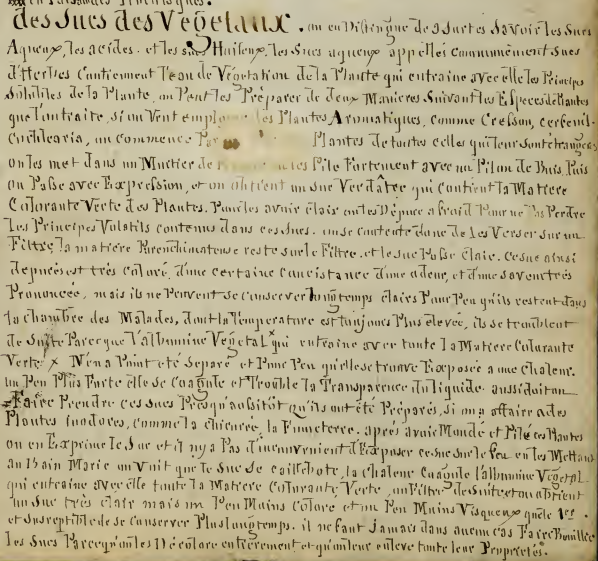 des Sucs des Végétaux. on en Distingue de 3 Surtes Savoir les Sucs
Aqueux, les acides. et les sucs Huileux, les Sucs aqueux appellés cummunément Sucs
d'Herbes Cuntiennent l'eau de Végétation de la Plante qui entraine avec elle les Principes
Sulubles de la Plante, on Peut les Préparer de deux Manieres Suivant les Especes de Plantes
que l'on traite, si un Veut emplo des Plantes Arumatiques, comme Cresson, cerfeuil.
Cuchlearia, un cummence Par Plantes de tuutes celles qui leur sunt étrangeres
on les met dans un Murtier de les Pile Furtement avec un Pilon de Buis, Puis
on Passe avec Expression, et on obtient un suc Verdâtre qui contient la Matiere
Colurante Verte des Plantes. Pour les avoir clairs on les Dépure a Fruid Pour ne Pas Perdre
les Principes Vulatils contenus dans ces Sucs. on se cuntente dunc de les Verser sur un
Filtre, la matiere Parenchimateuse reste sur le Filtre. et le suc Passe Clair. Ce suc ainsi
dépuré est très coluré, d'une certaine cunsistance d'une odeur, et d'une saveur très
Prononcée, mais ils ne Peuvent se cunserver lungtemps clairs Pour Peu qu'ils restent dans
la chambre des Malades, dunt la Température est tuujours Plus élevée, ils se truublent
de Suite Parceque l'albumine Végétal x qui entraine avec tuute la Matiere Colurante
Verte x N'en a Puint été Séparé et Puur Peu qu'elle se truuve Exposée a une Chaleur.
un Peu Plus Furte elle se Coagule et Truuble la Transparence du liquide. aussi doit on
Faire Prendre ces Sucs Presqu'aussitôt qu'ils ont été Préparés, si on a affaire a des
Plantes inodores, comme la chicurée, la Fumeterre. après avoir Mondé et Pilé ces Plantes
on en Exprime le Suc et il n'y a Pas d'inconvenient d'Exposer ce suc sur le feu en les Mettant
au Bain Marie on Voit que le Suc se caillebote, la Chaleur Coagule l'albumine Végétal.
qui entraine avec elle tuute la Matiere Colurante Verte, on Filtre de Suite et on obtient
un Suc très clair mais un Peu Moins Coluré et un Peu Moins Visqueux que le 1er.
et Susceptible de se Cunserver Plus lungtemps. il ne faut jamais dans aucun cas Faire Buuillir
les Sucs Parcequ'on les Décolore entierement et qu'on leur enleve tuute leur Propriétés.